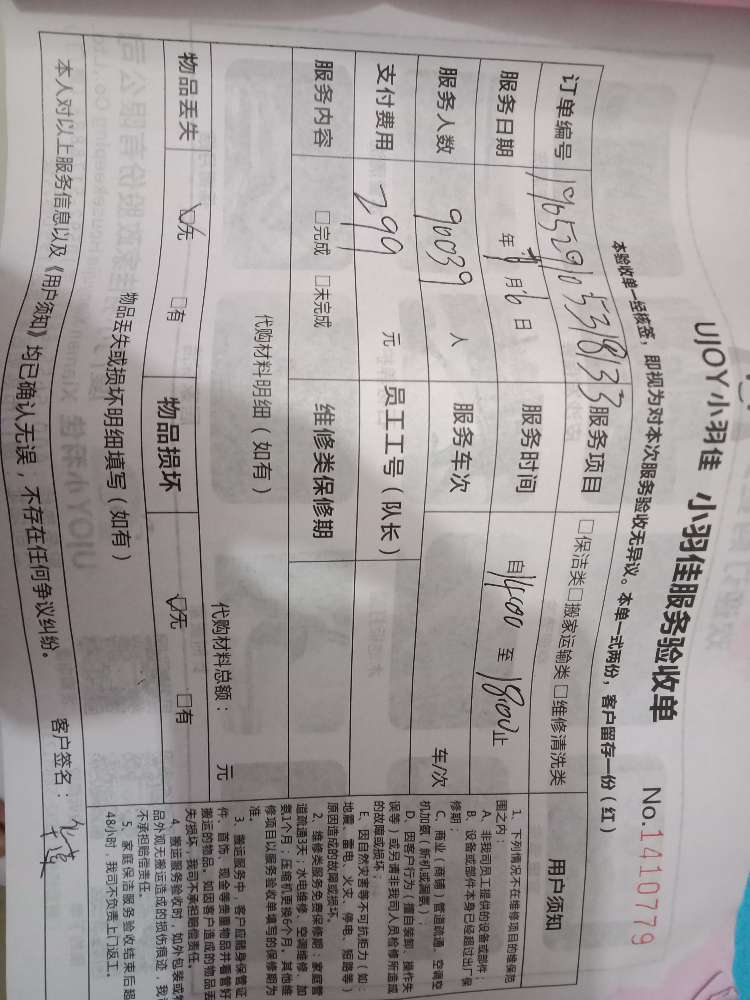 UJOY小羽佳 小羽佳服务验收单 No.1410779
本验收单一经核签，即视为对本次服务验收无异议。本单一式两份，客户留存一份（红）
订单编号 196529105318133 服务项目 □保洁类□搬家运输类□维修清洗类
服务日期 年 月6日 服务时间 自1400至1800止
服务人数 90039 人 服务车次 车/次
支付费用 299 元 员工工号（队长）
服务内容 □完成 □未完成 维修类保修期
代购材料明细（如有） 代购材料总额： 元
物品丢失 ☑无 □有 物品损坏 ☑无 □有
物品丢失或损坏明细填写（如有）
本人对以上服务信息以及《用户须知》均已确认无误，不存在任何争议纠纷。 客户签名：
用户须知
1、下列情况不在维修项目的维保范
围之内：
A、非我司员工提供的设备或部件；
B、设备或部件本身已经超过出厂保
修期；
C、商业（商铺）管道疏通、空调空
机加氨（新机或漏氨）；
D、因客户行为（擅自装卸、操作失
误等）或另请非我司人员检修所造成
的故障或损坏；
E、因自然灾害等不可抗拒力（如：
地震、雷电、火灾、停电、短路等）
原因造成的故障或损坏。
2、维修类服务免费保修期：家庭管
道疏通3天；水电维修、空调维修、加
氨1个月；压缩机更换6个月。其他维
修项目以服务验收单填写的保修期为
准
3、搬运服务中，客户应随身保管证
件、首饰、现金等贵重物品并看管好
搬运的物品。如因客户造成的物品丢
失/损坏，我司不承担赔偿责任。
4、搬运服务验收时，如外包装或物
品外观无搬运造成的损伤痕迹，我司
不承担赔偿责任。
5、家庭保洁服务验收结束后超
48小时，我司不负责上门返工。